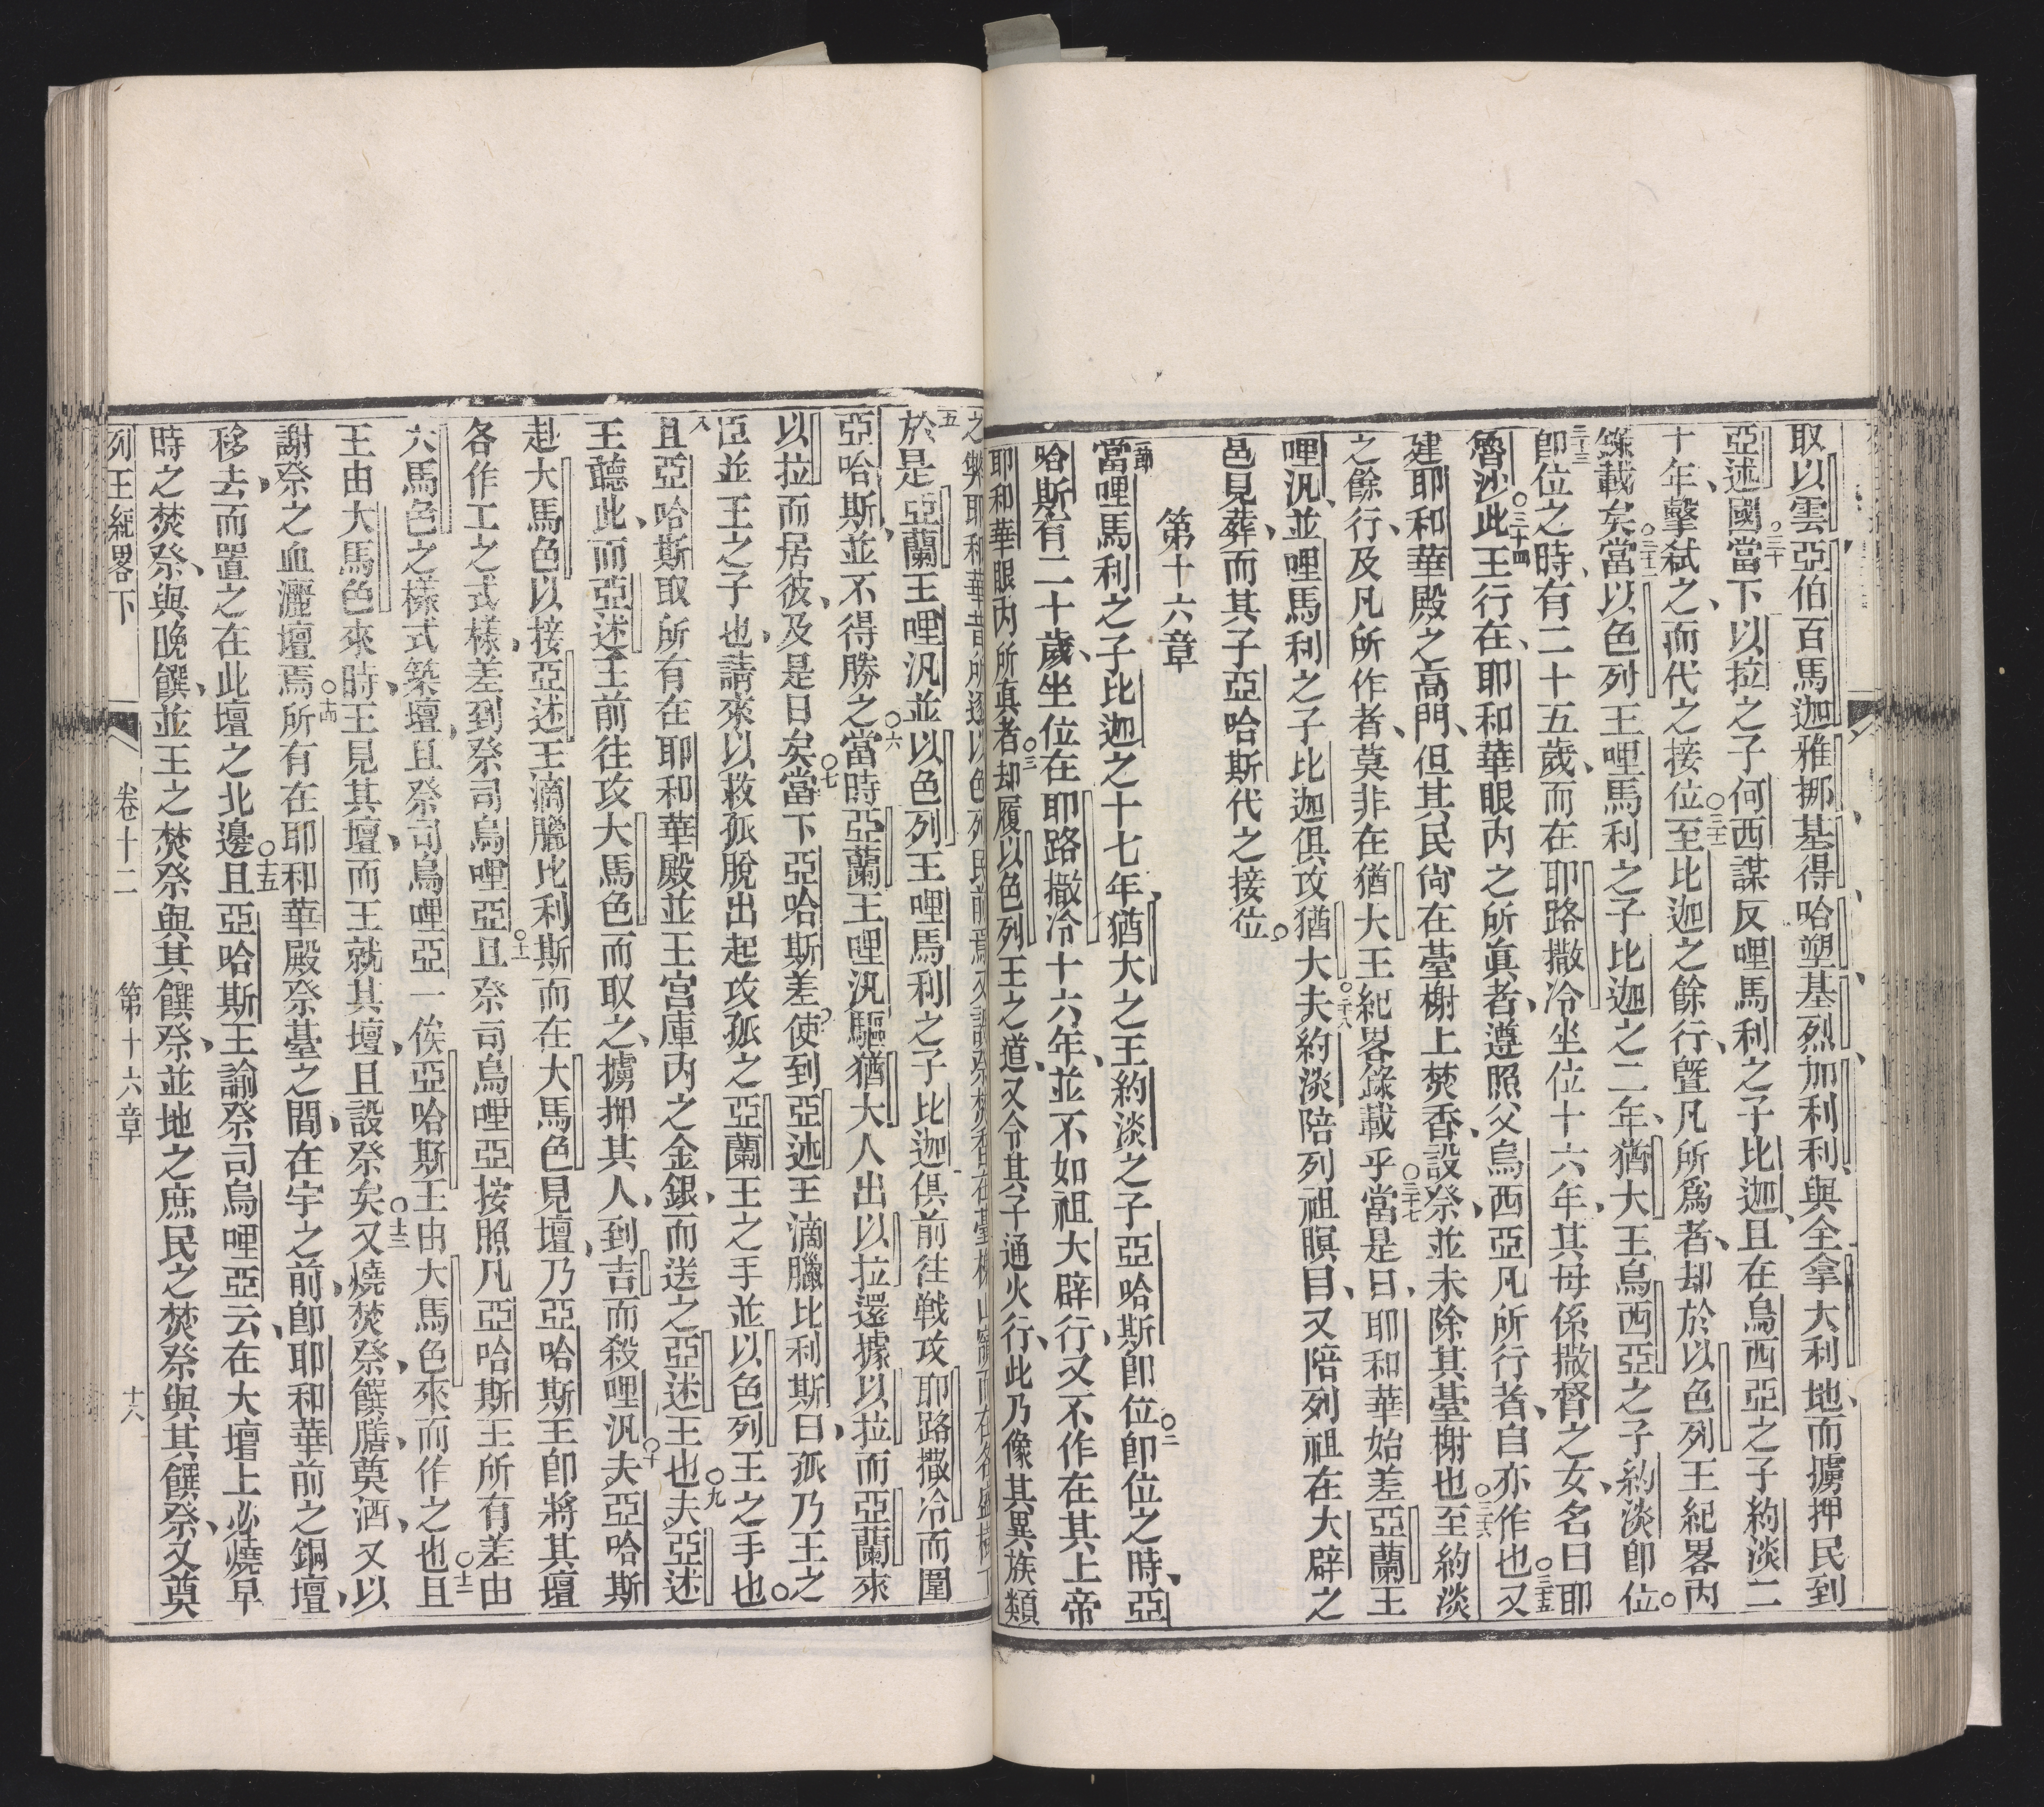 取以雲亞伯百馬迦雅挪基得哈塑基烈加利利與全拿大利地而擄押民到
亞述國○三十當下以拉之子何西謀反哩馬利之子比迦且在烏西亞之子約淡二
十年擊弒之而代之接位○三十一至比迦之餘行曁凡所爲者却於以色列王紀畧內
錄載矣○三十二當以色列王哩馬利之子比迦之二年猶大王烏西亞之子約淡卽位○
三十三卽位之時有二十五歲而在耶路撒冷坐位十六年其母係撒督之女名曰耶
魯沙○三十四此王行在耶和華眼內之所眞者遵照父烏西亞凡所行者自亦作也○三十五又
建耶和華殿之高門但其民尙在臺榭上焚香設祭並未除其臺榭也○三十六至約淡
之餘行及凡所作者莫非在猶大王紀畧錄載乎○三十七當是日耶和華始差亞蘭王
哩汎並哩馬利之子比迦俱攻猶大○三十八夫約淡陪列祖瞑目又陪列祖在大辟之
邑見葬而其子亞哈斯代之接位○
第十六章
一節當哩馬利之子比迦之十七年猶大之王約淡之子亞哈斯卽位○二卽位之時亞
哈斯有二十歲坐位在耶路撒冷十六年並不如祖大辟行又不作在其上帝
耶和華眼內所眞者○三却履以色列王之道又令其子通火行此乃像其異族類
之弊耶和華昔所逐以色列民前焉
五於是亞蘭王哩汎並以色列王哩馬利之子比迦俱前往戰攻耶路撒冷而圍
亞哈斯並不得勝之○六當時亞蘭王哩汎驅猶大人出以拉還據以拉而亞蘭來
以拉而居彼及是日矣○七當下亞哈斯差使到亞述王滴臘比利斯曰孤乃王之
臣並王之子也請來以救孤脫出起攻孤之亞蘭王之手並以色列王之手也○
八且亞哈斯取所有在耶和華殿並王宮庫內之金銀而送之亞述王也○九夫亞述
王聽此而亞述王前往攻大馬色而取之擄押其人到吉而殺哩汎○十夫亞哈斯
赴大馬色以接亞述王滴臘比利斯而在大馬色見壇乃亞哈斯王卽將其壇
各作工之式樣差到祭司烏哩亞○十一且祭司烏哩亞按照凡亞哈斯王所有差由
大馬色之樣式築壇且祭司烏哩亞一俟亞哈斯王由大馬色來而作之也○十二且
王由大馬色來時王見其壇而王就其壇且設祭矣○十三又燒焚祭饌膳奠酒又以
謝祭之血灑壇焉○十四所有在耶和華殿祭臺之間在宇之前卽耶和華前之銅壇
移去而置之在此壇之北邊○十五且亞哈斯王諭祭司烏哩亞云在大壇上必燒早
時之焚祭與晚饌並王之焚祭與其饌祭並地之庶民之焚祭與其饌祭又奠
列王紀畧下 卷十二 第十六章 十六